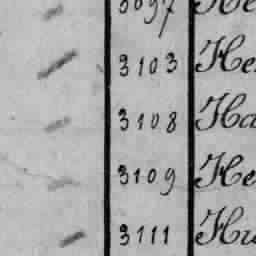 3097 He
3103 He
3108 Ha
3109 He
3111 Hu